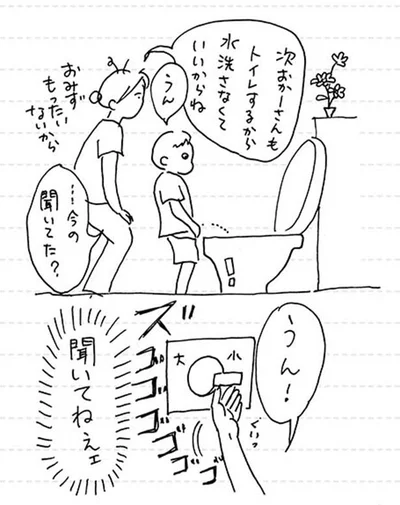 次おかーさんも
トイレするから
水洗さなくて
いいからね
うん
おみず
もったい
ないから
…今の
聞いてた？
うん！
大 小
ぐいっ
ズゴゴゴゴゴ
聞いてねぇェ